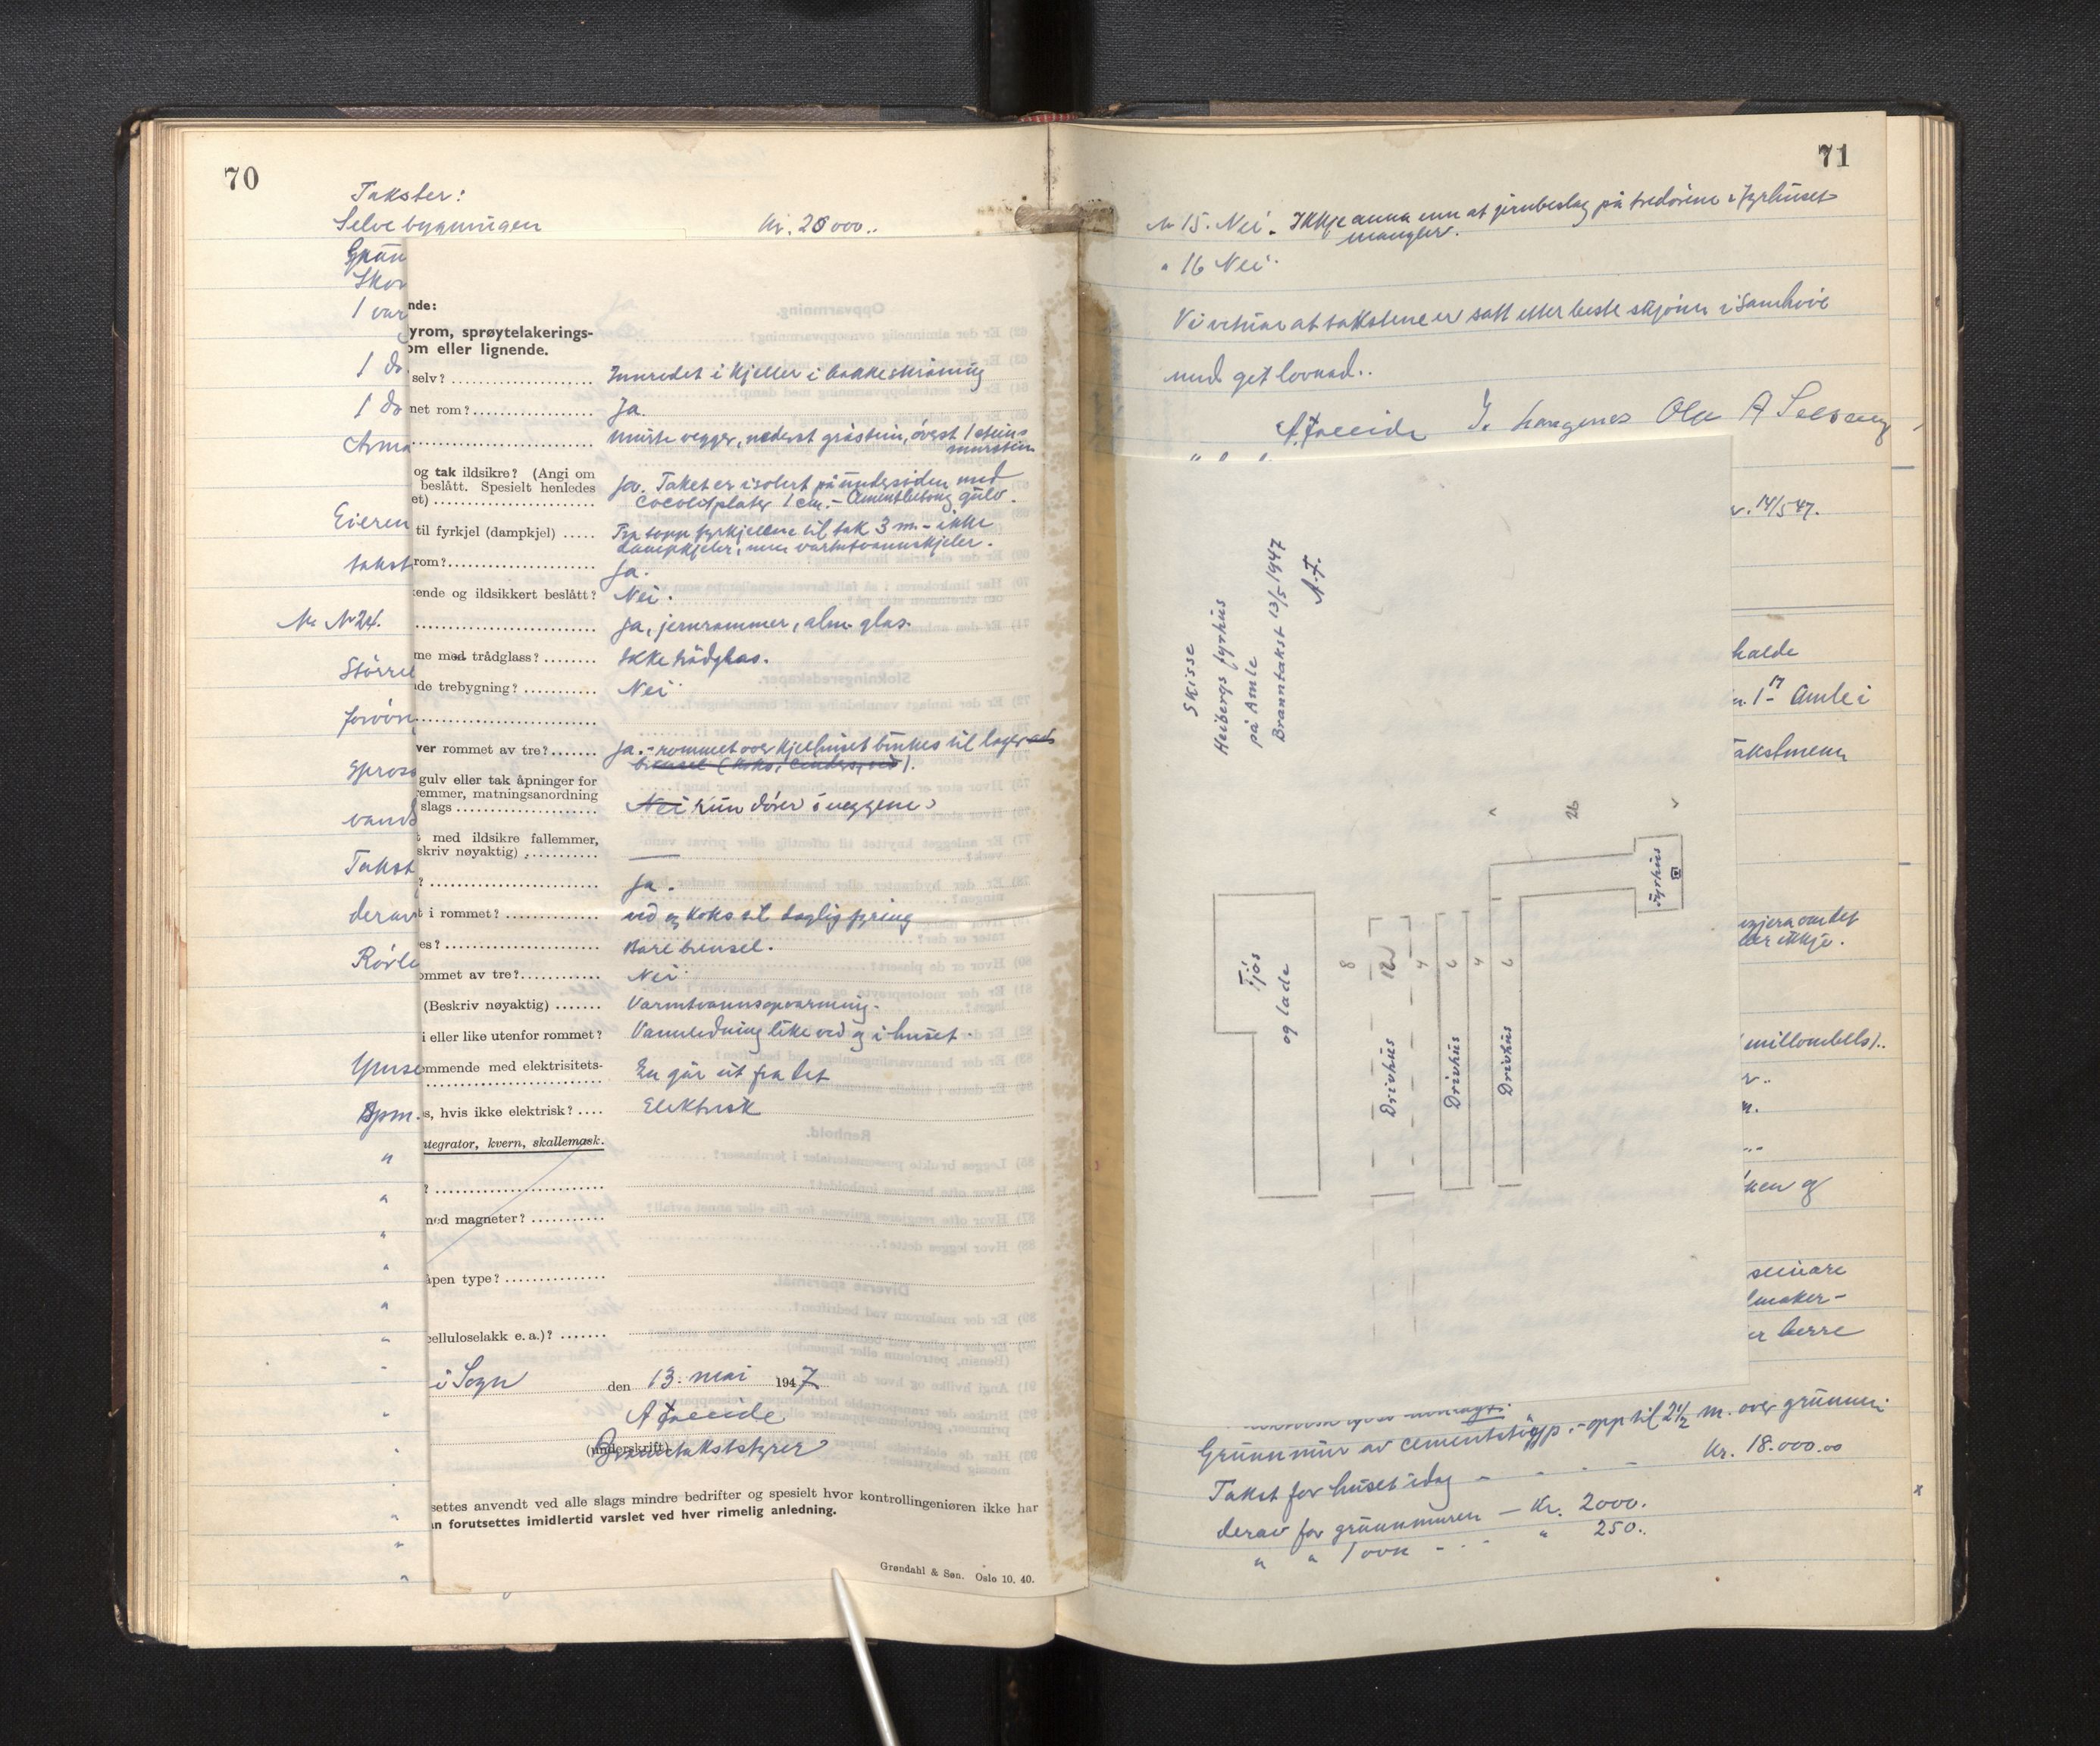 70
Takster:
Selve bygningen Kr. 28000..
Grun
Skor
1 var
1 do
1 do
Arma
Eieren
takst
Nr 24.
Større
forøvr
spros
vands
Takst
derav
Rørle
Ymse
Spm.
nde:
yrom, sprøytelakerings-
om eller lignende.
selv? Innredet i kjeller i bakkeskråning
net rom? Ja.
murte vegger, nederst gråstein, øverst 1 steins
murstein
og tak ildsikre? (Angi om
beslått. Spesielt henledes
et) Ja. Taket er isolert på undersiden med
Cocolitplater 1 cm. - Cementbetong gulv.
til fyrkjel (dampkjel) Fra topp fyrkjelene til tak 3 m. - ikke
dampkjeler, men varmtvannskjeler.
rom? Ja.
ende og ildsikkert beslått? Nei.
Ja, jernrammer, alm. glas.
me med trådglass? Ikke trådglas.
de trebygning? Nei
ver rommet av tre? Ja. - rommet over kjelhuset brukes til lager av
brensel (koks, cinders, ved).
gulv eller tak åpninger for
emmer, matningsanordning
slags Nei kun dører i veggene
med ildsikre fallemmer,
skriv nøyaktig)
? Ja.
t i rommet? ved og koks til daglig fyring
es? Bare brensel.
ommet av tre? Nei
(Beskriv nøyaktig) Varmtvannsopvarming.
i eller like utenfor rommet? Vannledning like ved og i huset.
ommende med elektrisitets-
En går ut fra det
s, hvis ikke elektrisk? Elektrisk
ntegrator, kvern, skallemask.
?
ned magneter?
åpen type?
celluloselakk e. a.)?
i Sogn den 13. mai 1947
A Freeide
(underskrift)
Branntakststyrer
settes anvendt ved alle slags mindre bedrifter og spesielt hvor kontrollingeniøren ikke har
an forutsettes imidlertid varslet ved hver rimelig anledning.
Grøndahl & Søn. Oslo 10. 40.
71
Nr 15. Nei. Ikkje anna enn at jernbeslag på tredørene i fyrhuset
mangler.
" 16 Nei.
Vi vitnar at takstene er satt etter beste skjønn i samhøve
med gjet lovnad..
A. Freeide J. Hamgenes Ola A Selseng
v. 14/5 47.
Skisse
Heibergs fyrhus
på Amle
Branntakst 13/5 1947
A.F.
26
Fyrhus
Fjøs
og lade
8
Drivhus 12
4
Drivhus 6
4
Drivhus 6
halde
Amle i
akstmenn
gjera om det
er ikkje.
(millombels)..
r..
m.
ken og
seinare
lmaker-
er berre
Grunnmur av cementstøyp. - opp til 2 1/2 m. over grunnen
Takst for huset idag - - - - Kr. 18.000.00
derav for grunnmuren - Kr. 2000.
" " 1 ovn - - - " 250..